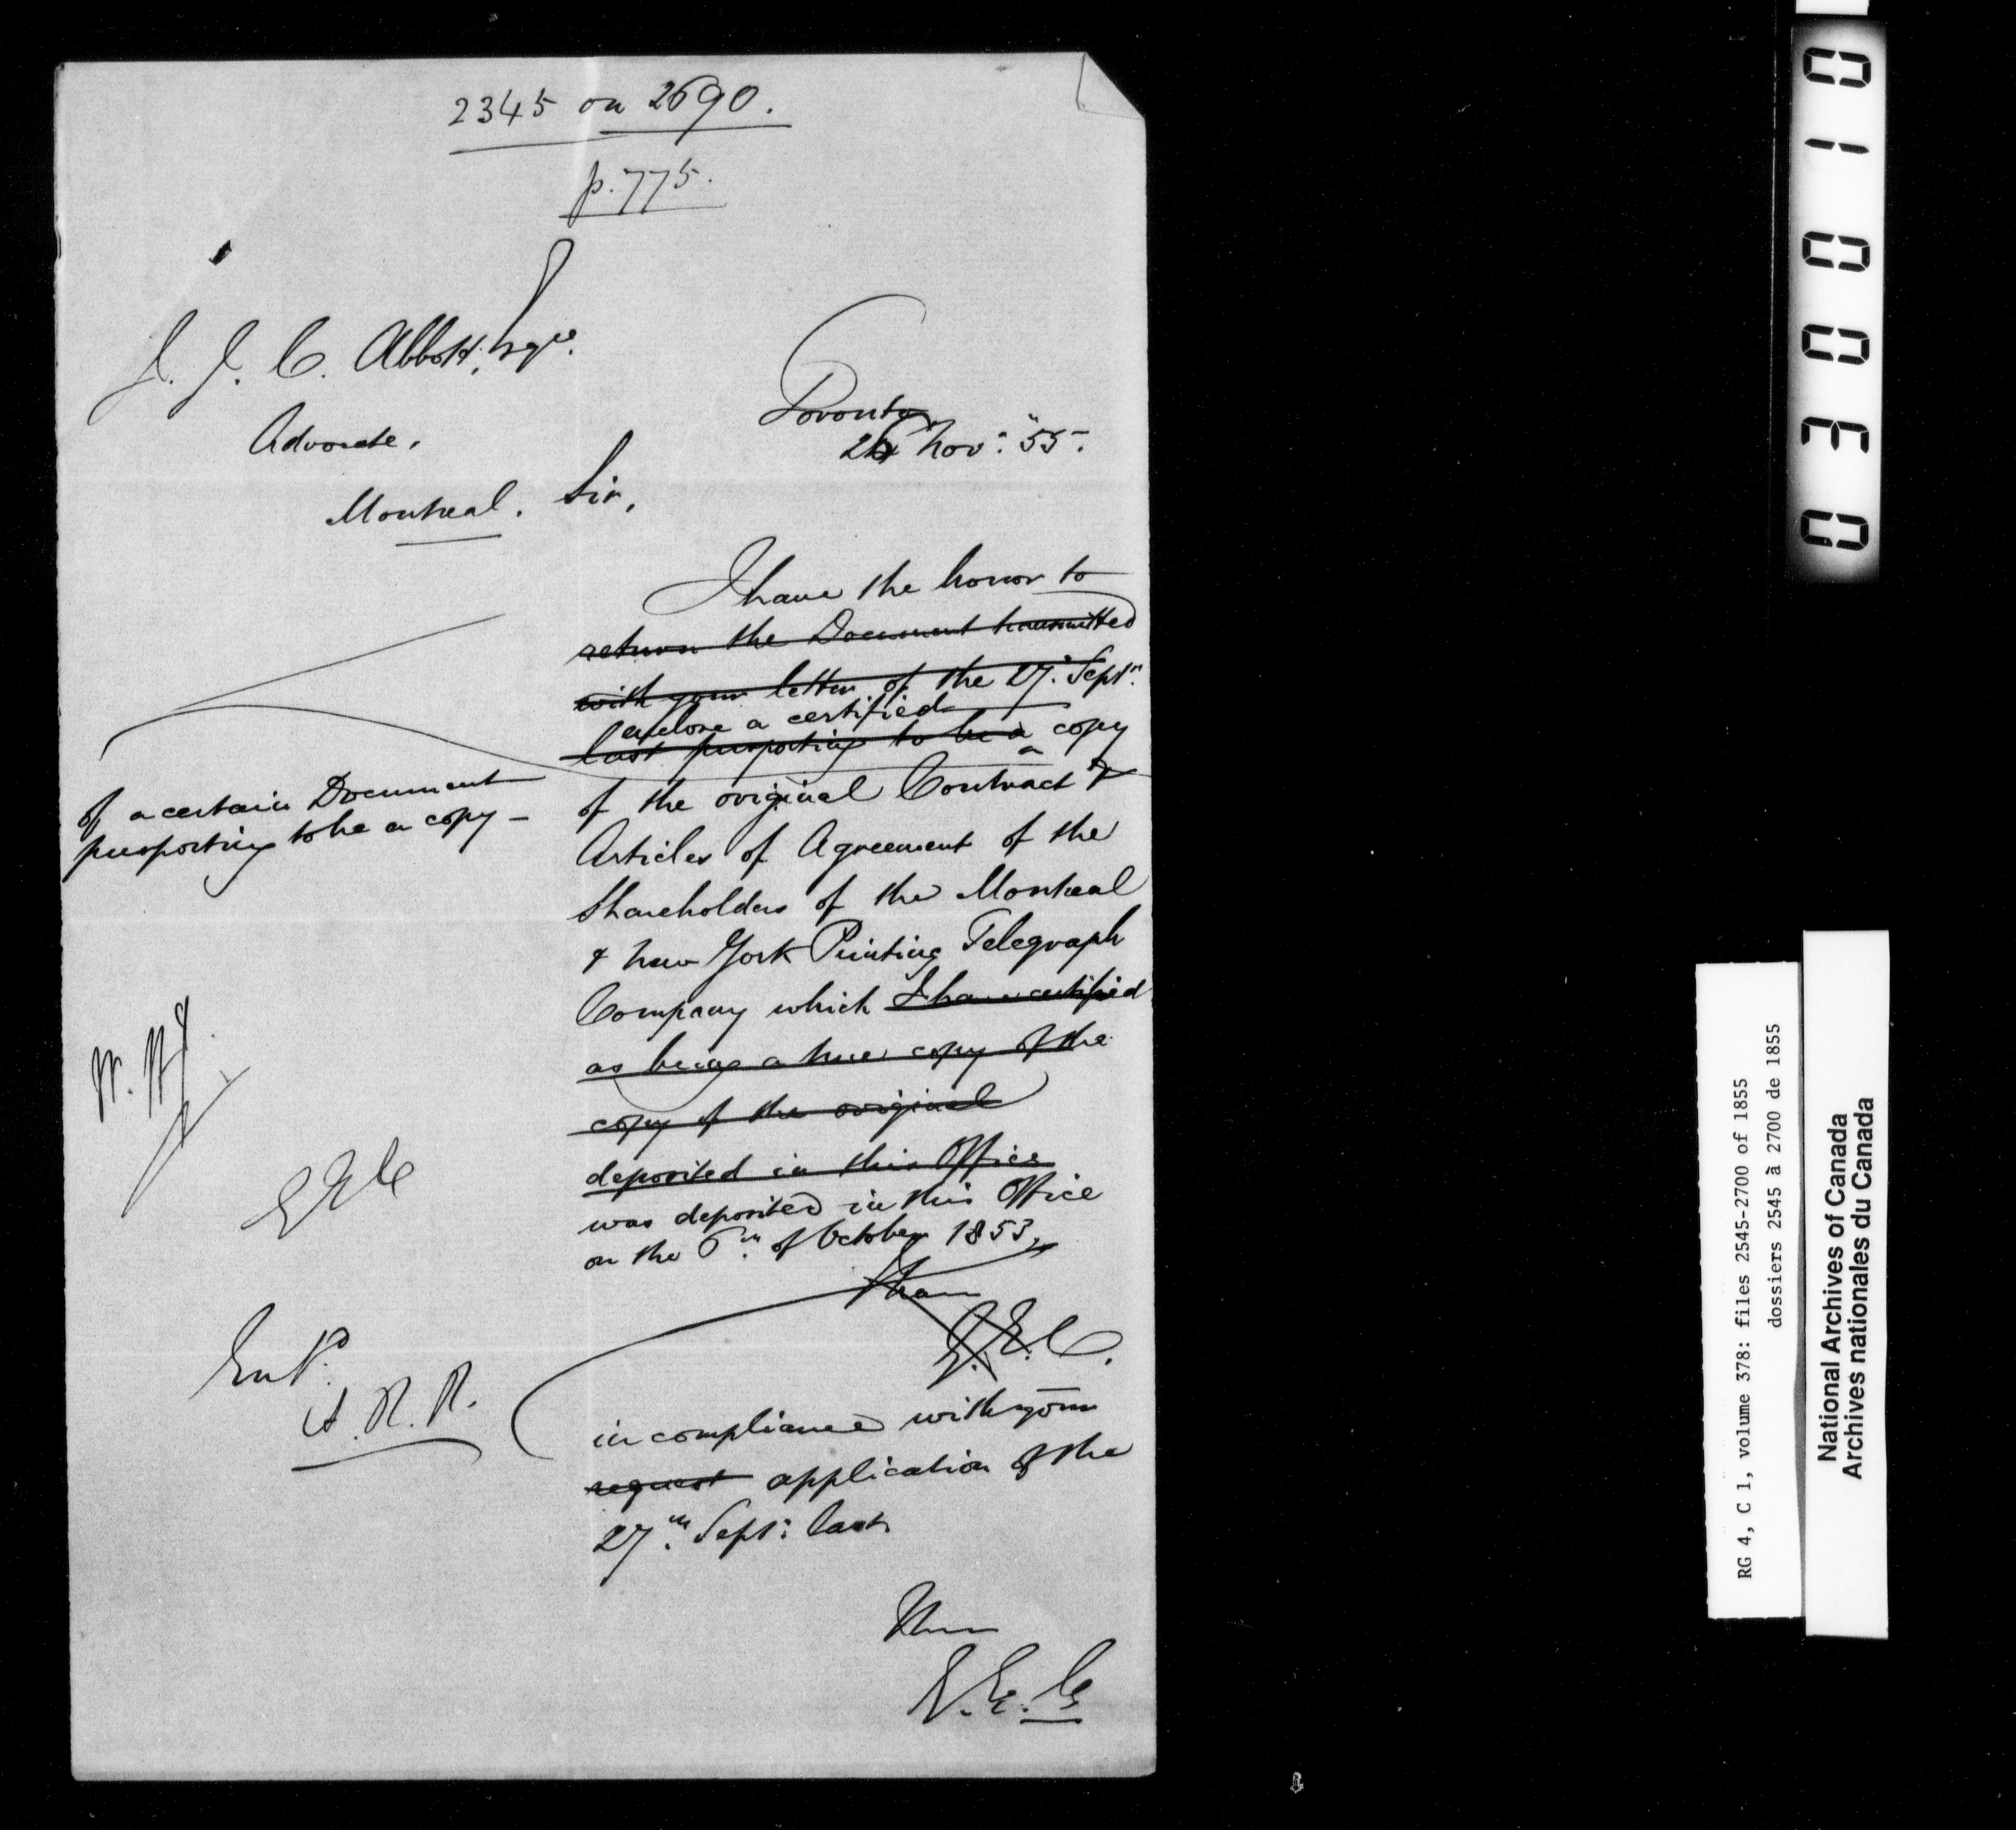 2345 on 2690.
p. 775.
J. J. C. Abbott, Esqre.
Advocate,
Montreal.
Toronto
Nov: "55.
Sir,
I have the honor to
return the Document transmitted
with your letter of the 27. Septr.
enclose a certified
last purporting to be a copy
of a certain Document
purporting to be a copy
of the original Contract &
Articles of Agreement of the
Shareholders of the Montreal
& New York Printing Telegraph
Company which I have certified
as being a true copy of the
copy of the original
deposited in this Office
was deposited in this Office
on the 6th of October 1853,
I have
G. E. C.
in compliance with your
request application of the
27th Sept: last
I have
G. E. C.
G E C
Entd.
A. R. R.
00100030
RG 4, C 1, volume 378: files 2545-2700 of 1855
dossiers 2545 à 2700 de 1855
National Archives of Canada
Archives nationales du Canada